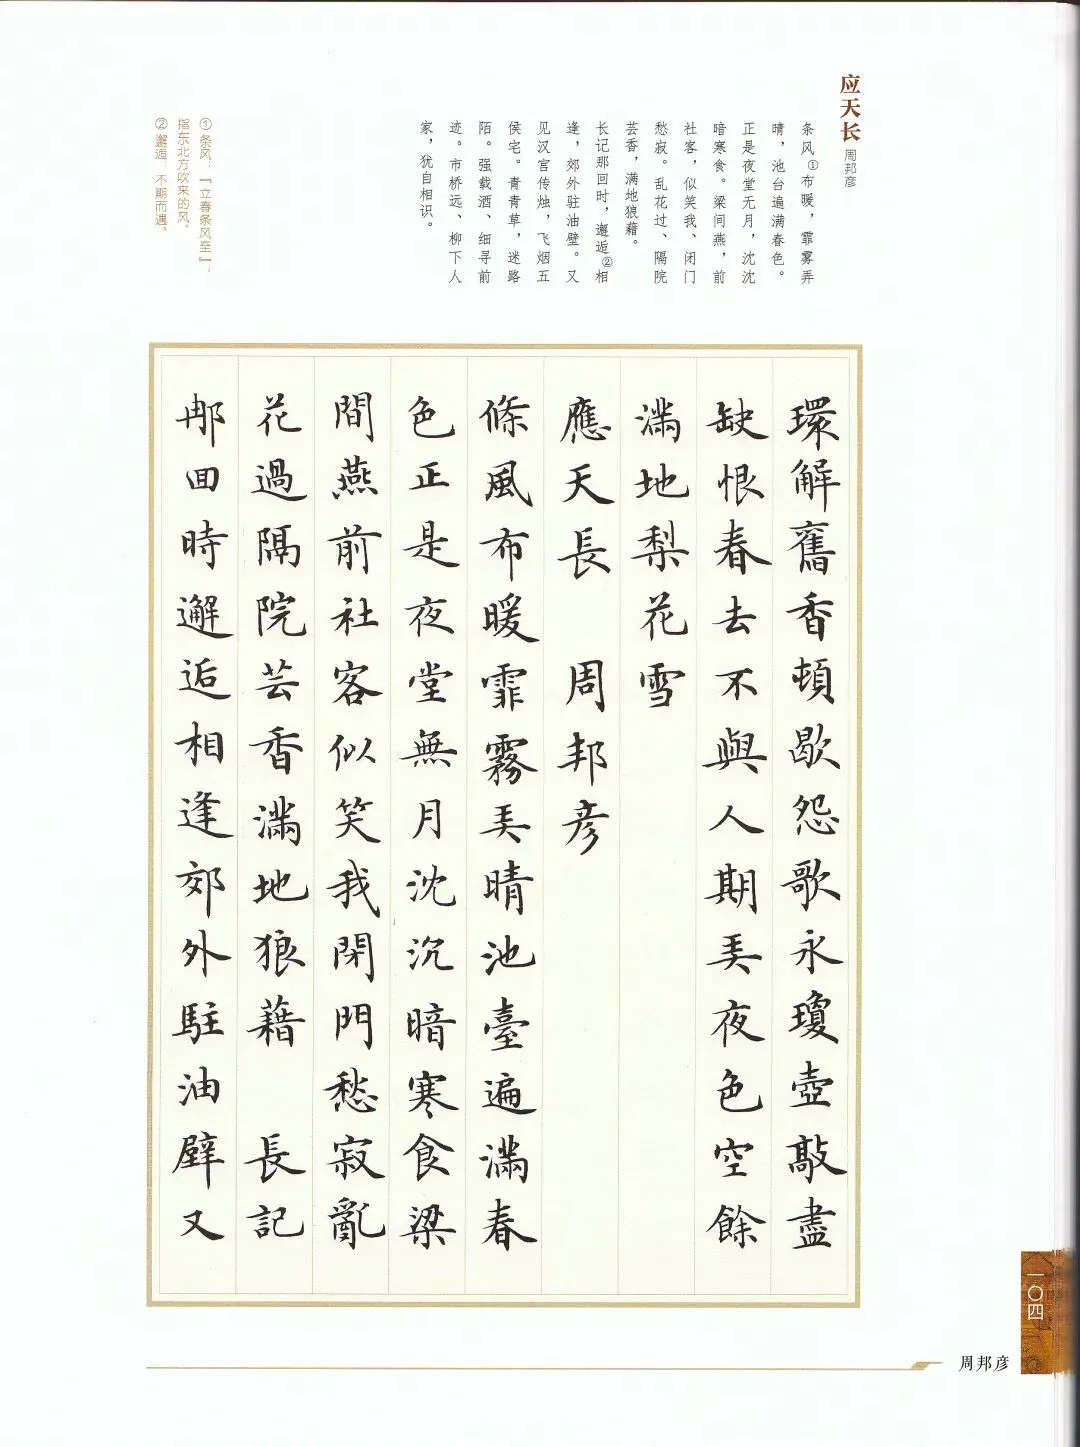 应天长
周邦彦
条风①布暖，霏雾弄
晴，池台遍满春色。
正是夜堂无月，沈沈
暗寒食。梁间燕，前
社客，似笑我、闭门
愁寂。乱花过、隔院
芸香，满地狼藉。
长记那回时，邂逅②相
逢，郊外驻油壁。又
见汉宫传烛，飞烟五
侯宅。青青草，迷路
陌。强载酒、细寻前
迹。市桥远、柳下人
家，犹自相识。
① 条风：『立春条风至』，
指东北方吹来的风。
② 邂逅：不期而遇。
環解舊香頓歇怨歌永瓊壺敲盡
缺恨春去不與人期弄夜色空餘
滿地梨花雪
應天長 周邦彦
條風布暖霏霧弄晴池臺遍滿春
色正是夜堂無月沈沉暗寒食梁
間燕前社客似笑我閉門愁寂亂
花過隔院芸香滿地狼藉 長記
那回時邂逅相逢郊外駐油壁又
一〇四
周邦彦